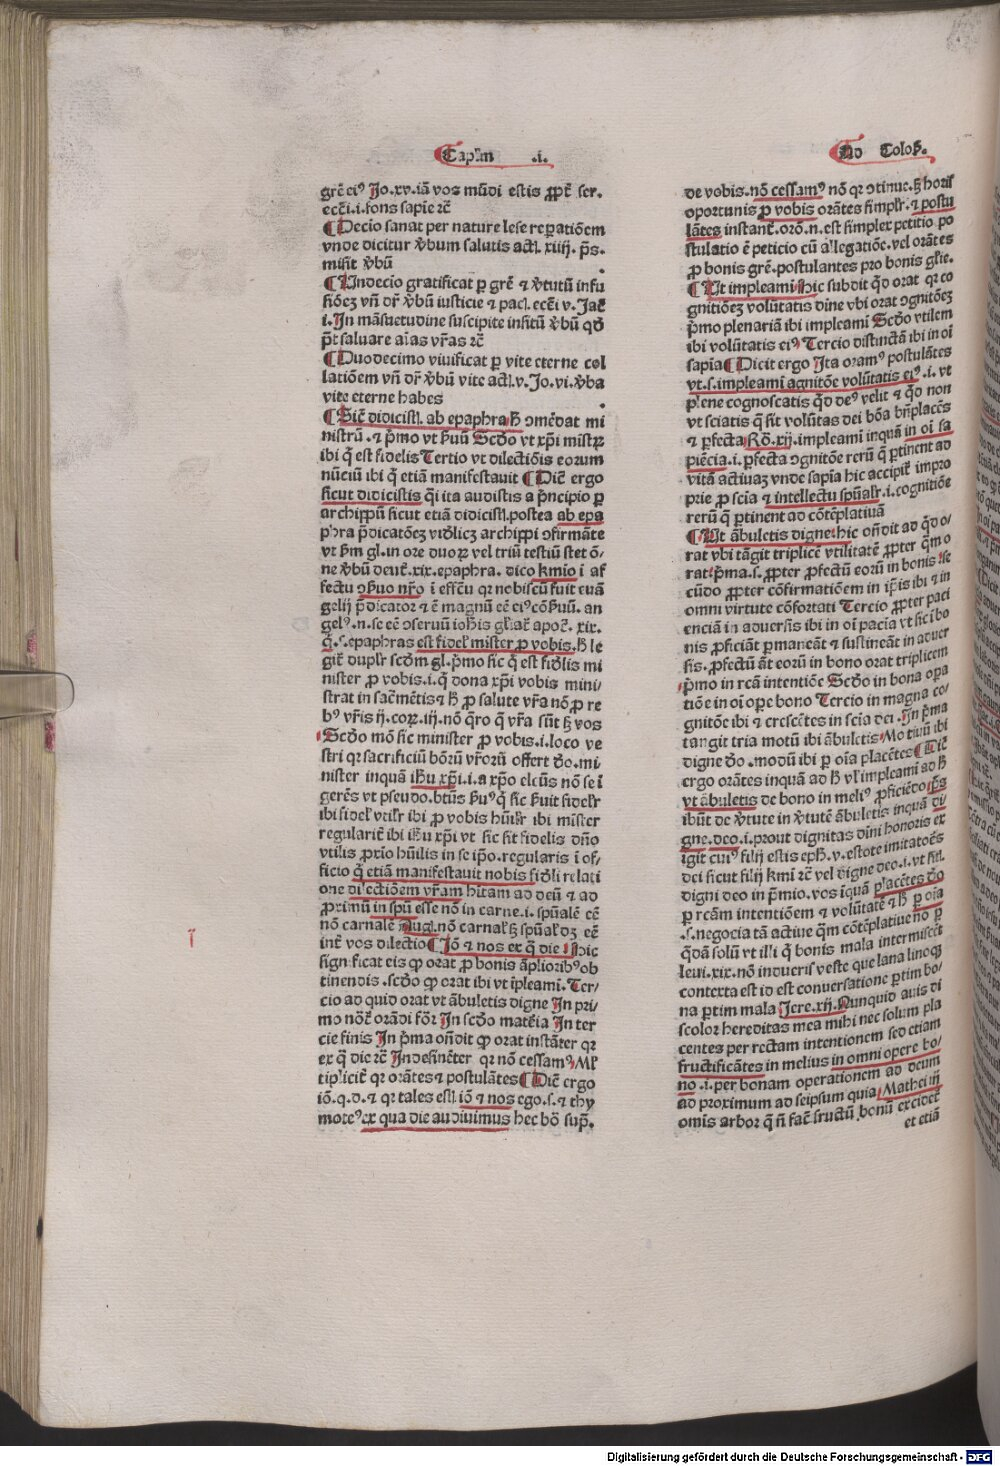 Capl'm .i.
grē ei⁹ Jo.xv.iā vos mūdi estis ꝓpt̄ ser.
eccī.i.fons sapīe rc̄
¶ Decio sanat per nature lese rep̄atiōem
vnde dicitur v̄bum salutis act̄.xiij. p̄s.
misit v̄bū
¶ Vndecio gratificat ꝑ grē ⁊ v̄tutū infu
siōeꝫ vn̄ dr̄ v̄bū iusticie ⁊ pacī.eccī v. Jac̄
i. Jn māsuetudine suscipite insitū v̄bū qd̄
p̄t saluare aīas vr̄as rc̄
¶ Duodecimo viuificat ꝑ vite eterne col
latiōem vn̄ dr̄ v̄bū vite act̄.v.Jo.vi.v̄ba
vite eterne habes
¶ Sic̄ didicist̄.ab epaphra ꝑ ꝯmēdat mi
nistrū.⁊ p̄mo vt ẜuū Scd̄o vt xp̄i mīstrꝫ
ibi q̄ est fidelis Tertio vt dilectiōis eorum
nūciū ibi q̄ etiā manifestauit ¶ Dic̄ ergo
sicut didicistis q̄i ita audistis a p̄ncipio ꝑ
archippū sicut etiā didicist̄.postea ab epa
phra p̄dicatōeꝫ vid̄licꝫ archippi ꝯfirmāte
vt ẜm gl̄.in ore duoꝝ vel triū testiū stet ō-
ne v̄bū deut̄.xix.epaphra. dico kmio i af
fectu ꝯẜuo nr̄o i effcū qr nobiscū fuit euā
gelij p̄dicator ⁊ ē magnū eē ei⁹ cōẜuū. an
gel⁹.n.se eē ꝯseruū ioh̄is gl̄iat̄ apoc̄. xix.
q̄.s.epaphras est fidel̄ mīster ꝓ vobis.ꝑ le
git̄ dupl̄r scd̄m gl̄.p̄mo sic q̄ est fid̄lis mi
nister ꝓ vobis.i.q̄ dona xp̄i vobis mini/
strat in sac̄mētis ⁊ ꝑ ꝓ salute vr̄a nō ꝓ re
b⁹ vr̄is ij.corꝫ.iij.nō q̄ro q̄ vr̄a sūt ꝫ vos
Scd̄o mō sic minister ꝓ vobis.i.loco ve
stri qr sacrificiū bōrū vr̄orū offert d̄o.mi/
nister inquā ih̄u xp̄i.i.a xp̄o elcūs nō se i
gerēs vt pseudo.btūs ẜu⁹ q̄ sic ẜuit fidel̄r
ibi fidel̄ vtil̄r ibi ꝓ vobis hūil̄r ibi mīster
regularit̄ ibi ih̄u xp̄i vt sic sit fidelis dn̄o
vtilis ꝓxīo hūilis in se ip̄o.regularis i of/
ficio q̄ etiā manifestauit nobis fid̄li relati
one dilectiōem vr̄am hitam ad deū ⁊ ad
ꝓximū in spū esse nō in carne.i.spūalē cē
nō carnalē Auḡ.nō carnal̄ ꝫ spūal̄ dꝫ eē
int̄ vos dilectio ¶ Jō ⁊ nos ex q̄ die hic
significat eis ꝙ orat ꝓ bonis āplioribꝰ ob
tinendis.scd̄o ꝙ orat ibi vt īpleamī.Ter/
cio ad quid orat vt ābuletis digne Jn pri
mo nōt̄ orādi fōr̄ Jn scd̄o mat̄ia Jn ter
cie finis Jn p̄ma on̄dit ꝙ orat instāter qr
ex q̄ die rc̄ Jndefinēter qr nō cessam⁹ Ml̄
tiplicit̄ qr orātes ⁊ postulātes ¶ Dic̄ ergo
iō.q.d.⁊ qr tales est̄.iō ⁊ nos ego.s.⁊ thy
mote⁹ ex qua die audiuimus hec bō sup̄.
Ad Coloꝭ.
de vobis.nō cessam⁹ nō qr ꝯtinue.ꝫ horis
oportunis ꝓ vobis orātes simpl̄r.⁊ postu
lātes instant̄.orō.n.est simplex petitio po
stulatio ē peticio cū allegatiōe.vel orātes
ꝓ bonis grē.postulantes pro bonis gl̄ie.
¶ Vt impleamī hic subdit q̄d orat qr co
gnitiōeꝫ volūtatis dine vbi orat ꝯgnitiōeꝫ
p̄mo plenariā ibi impleamī Scd̄o vtilem
ibi volūtatis ei⁹ Tercio distinctā ibi in oī
sapīa ¶ Dicit ergo Jta oram⁹ postulātes
vt.s.impleamī agnitōe volūtatis ei⁹.i. vt
plene cognoscatis q̄d de⁹ velit ⁊ q̄d non
vt sciatis q̄ sit volūtas dei bōa bn̄placēs
⁊ ꝑfecta Ro.xij.impleamī inquā in oī sa
piēcia.i.ꝑfecta ꝯgnitōe rerū q̄ ꝑtinent ad
vitā actiuaꝫ vnde sapīa hic accipit̄ impro
prie ꝓ scīa ⁊ intellectu spūal̄r.i.cognitiōe
rerū q̄ ꝑtinent ad cōtēplatiuā
¶ Vt ābuletis digne hic on̄dit ad q̄d o/
rat vbi tāgit triplicē vtilitatē ꝓpter q̄m o
rat p̄ma.s.ꝓpter ꝓfectū eorū in bonis se
cūdo ꝓpter cōfirmatiōem in ip̄is ibi ⁊ in
omni virtute cōfortati Tercio ꝓpter paci
enciā in aduersis ibi in oī pacīa vt sic ibo
nis ꝓficiāt ꝑmaneāt ⁊ sustineāt in aduer
sis.ꝓfectū āt eorū in bono orat triplicem
p̄mo in rcā intentiōe Scd̄o in bona opa
tiōe in oī oꝑe bono Tercio in magna co/
gnitōe ibi ⁊ crescētes in scīa dei.Jn p̄ma
tangit tria motū ibi ābuletis Motiuū ibi
digne d̄o.modū ibi ꝑ oīa placētes ¶ Dic̄
ergo orātes inquā ad ꝑ vt impleamī ad ꝑ
vt ābuletis de bono in meli⁹ ꝓficiēdo p̄s
ibūt de v̄tute in v̄tutē ābuletis inquā di
gne.deo.i.prout dignitas dini honoris ex
igit cui⁹ filij estis eph̄.v.estote imitatoēs
dei sicut filij kmī rc̄ vel digne deo.i.vt sitī
digni deo in p̄mio.vos īquā placētes d̄o
ꝑ rcām intentiōem ⁊ volūtatē ⁊ ꝑ ꝑ oīa
.s.negocia tā actiue q̄m cōtēplatiue nō ꝑ
q̄dā solū vt illi q̄ bonis mala intermiscēt
leui.xix.nō indueris veste que lana linoqꝫ
contexta est id est conuersatione ꝑtim bo/
na ꝑtim mala Jere.xij.Nunquid auis di
scolor hereditas mea mihi nec solum pla
centes per rectam intentionem sed etiam
fructificātes in melius in omni opere bo/
no.i.per bonam operationem ad deum
ad proximum ad seipsum quia Mathei iij
omīs arbor q̄ n̄ fac̄ fructū bonū excidet̄
et etiā
Digitalisierung gefördert durch die Deutsche Forschungsgemeinschaft - DFG